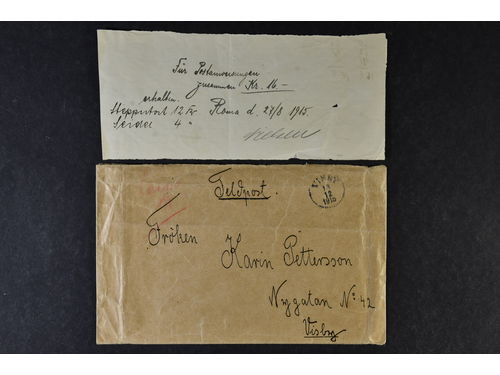 Für Postanweisungen
zusammen Kr. 16.—
erhalten.
12 Kr Roma d. 27/8 1915.
Seidel 4 "
Feldpost.
12
1915
Fröken
Karin Pettersson
Nygatan No 42
Visby